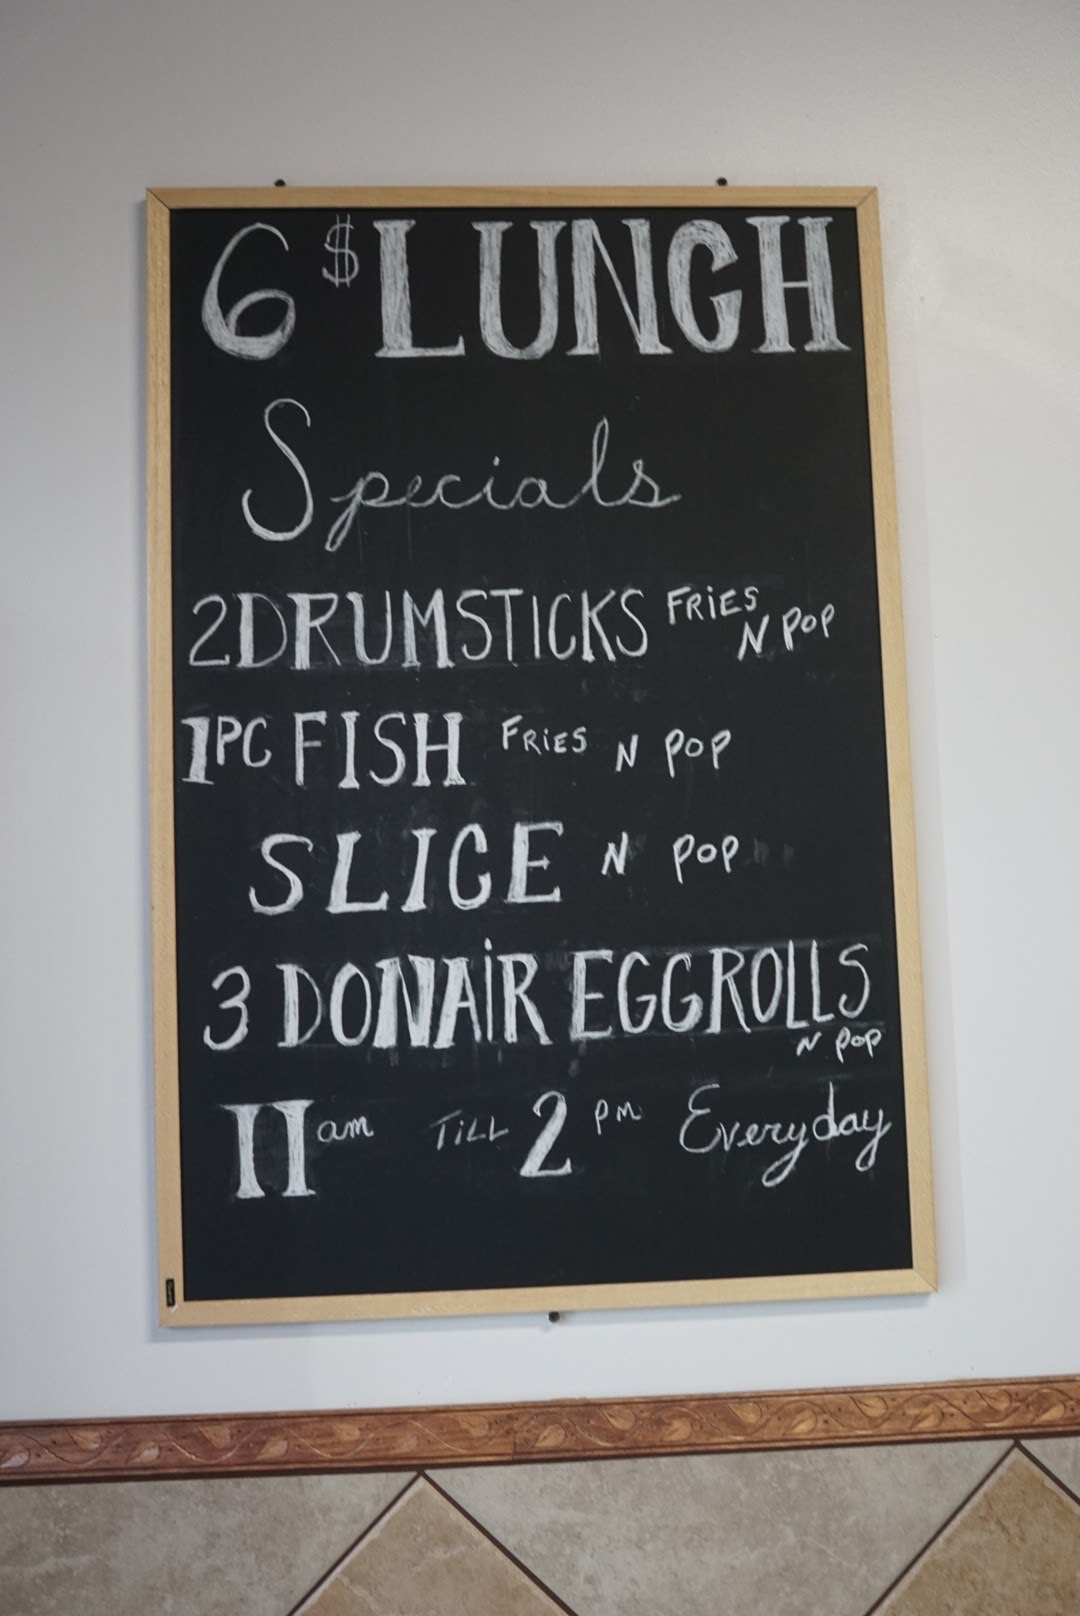 6$ LUNCH
Specials
2 DRUMSTICKS FRiES N POP
1PC FISH FRiES N POP
SLICE N POP
3 DONAiR EGGROLLS
N POP
11am TiLL 2 pm Everyday